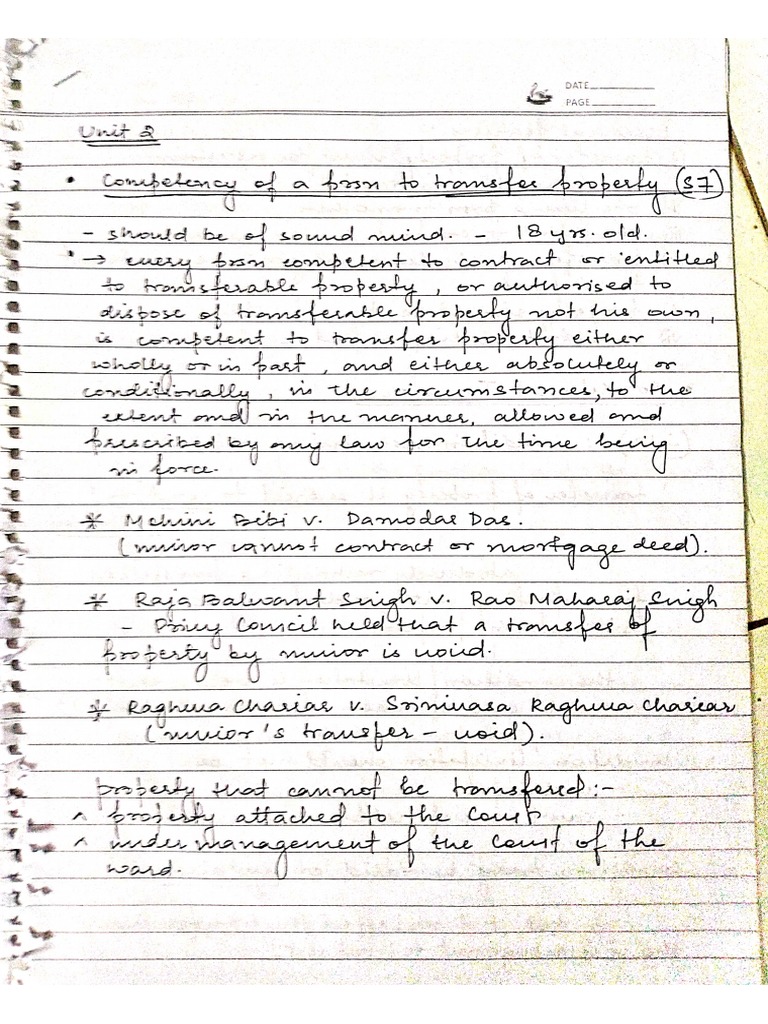 DATE
PAGE
Unit 2
• Competency of a prsn to transfer property (S7)
- should be of sound mind. - 18 yrs. old.
• → every prsn competent to contract or entitled
to transferable property, or authorised to
dispose of transferable property not his own,
is competent to transfer property either
wholly or in part, and either absolutely or
conditionally, in the circumstances, to the
extent and in the manner, allowed and
prescribed by any law for the time being
in force.
* Mohini Bibi v. Damodar Das.
(minor cannot contract or mortgage deed).
* Raja Balwant Singh v. Rao Maharaj Singh
- Privy Council held that a transfer of
property by minor is void.
* Raghwa Chariar v. Srinivasa Raghwa Chariar
(minor's transfer - void).
property that cannot be transferred :-
^ property attached to the Court
^ under management of the Court of the
ward.